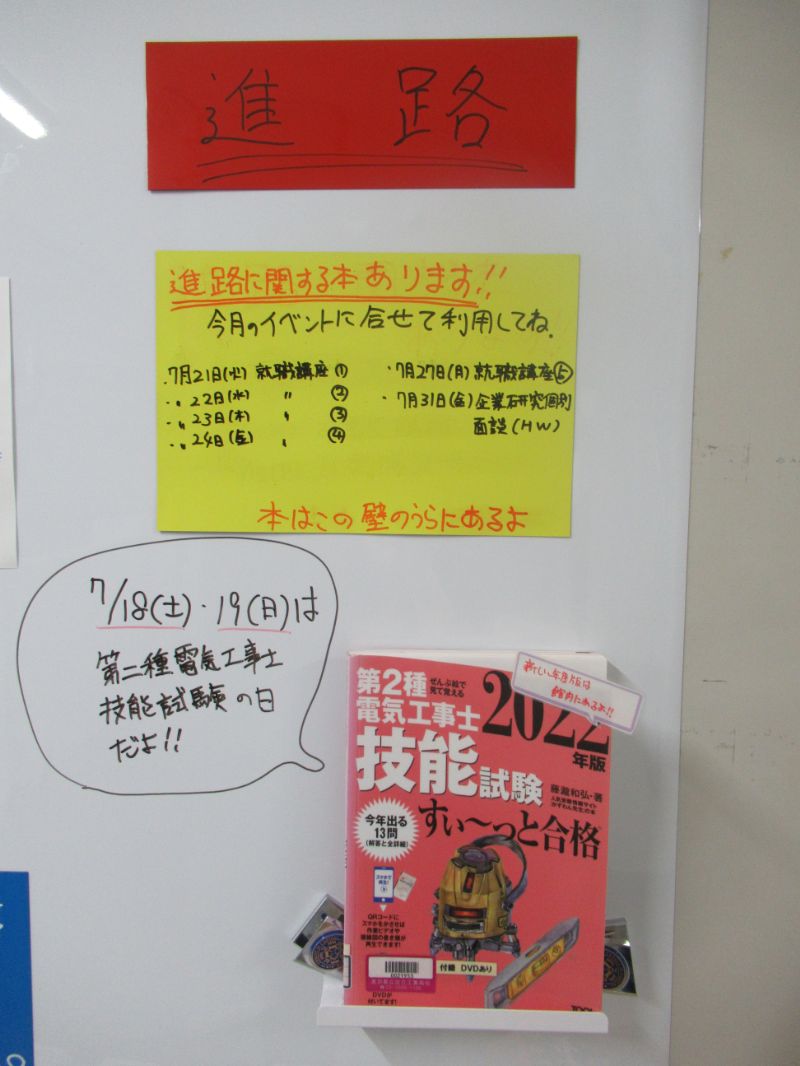 進路
進路に関する本あります!!
今月のイベントに合せて利用してね.
・7月21日(火) 就職講座①
・〃22日(水) 〃 ②
・〃23日(木) 〃 ③
・〃24日(金) 〃 ④
・7月27日(月) 就職講座⑤
・7月31日(金) 企業研究個別
面談(HW)
本はこの壁のうらにあるよ
7/18(土)・19(日)は
第二種電気工事士
技能試験の日
だよ!!
新しい年度版は
館内にあるよ!!
第2種
ぜんぶ絵で
見て覚える
電気工事士
2022
年版
技能試験
藤瀧和弘・著
すい〜っと合格
今年出る
13問
(解答と全詳細)
スマホで
再生!
QRコードに
スマホをかざせば
作業ビデオや
複線図の書き順が
再生できます!
付録 DVDあり
0021953
DVDが
付いてます!